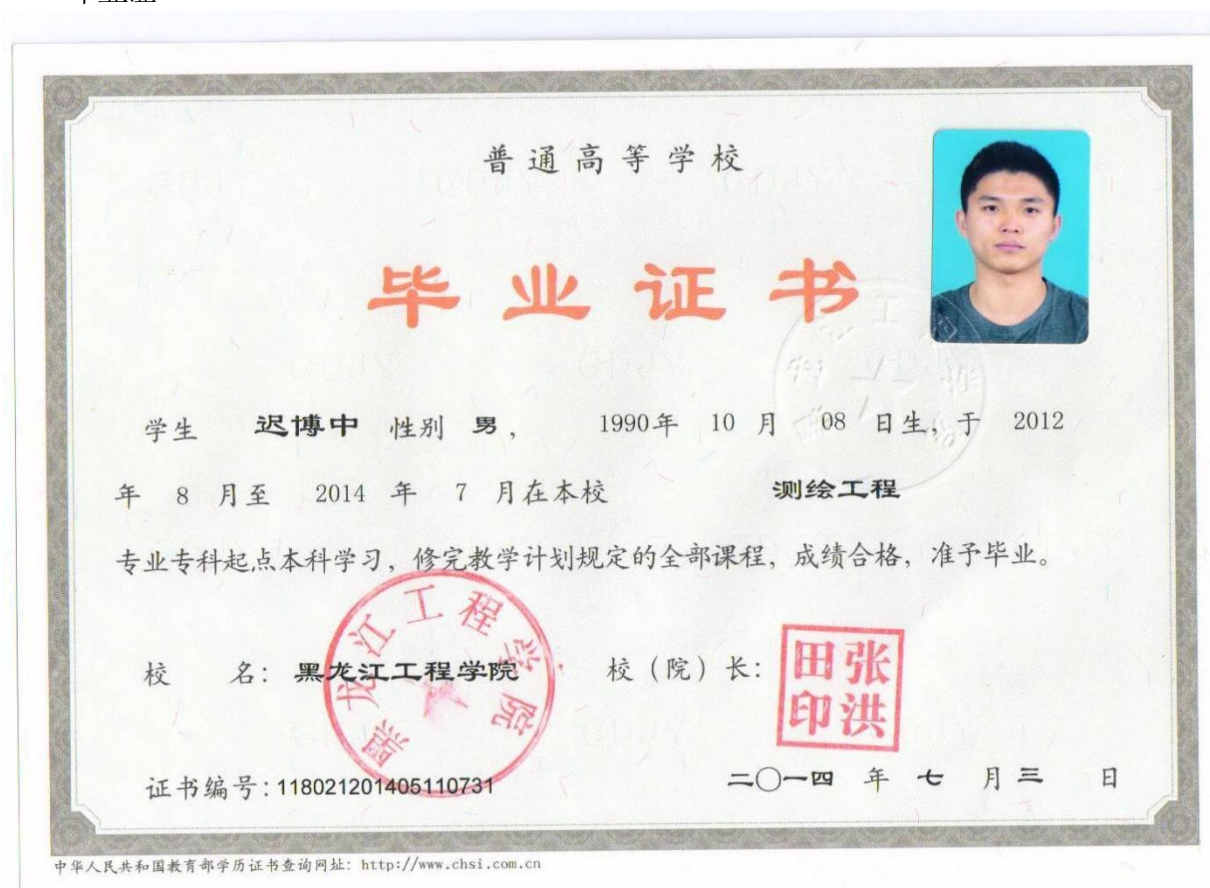 普通高等学校
毕业证书
学生 迟博中 性别 男, 1990年 10 月 08 日生, 于 2012
年 8 月至 2014 年 7 月在本校 测绘工程
专业专科起点本科学习, 修完教学计划规定的全部课程, 成绩合格, 准予毕业。
校 名: 黑龙江工程学院 校(院)长:
黑龙江工程学院
张洪田印
证书编号: 118021201405110731 二〇一四 年 七 月 三 日
中华人民共和国教育部学历证书查询网址: http://www.chsi.com.cn